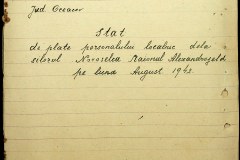 Jud. Oceacov
Stat
de plata personalului localnic dela
sectorul Novoselca Raionul Alexandrogold
pe luna August 1942.